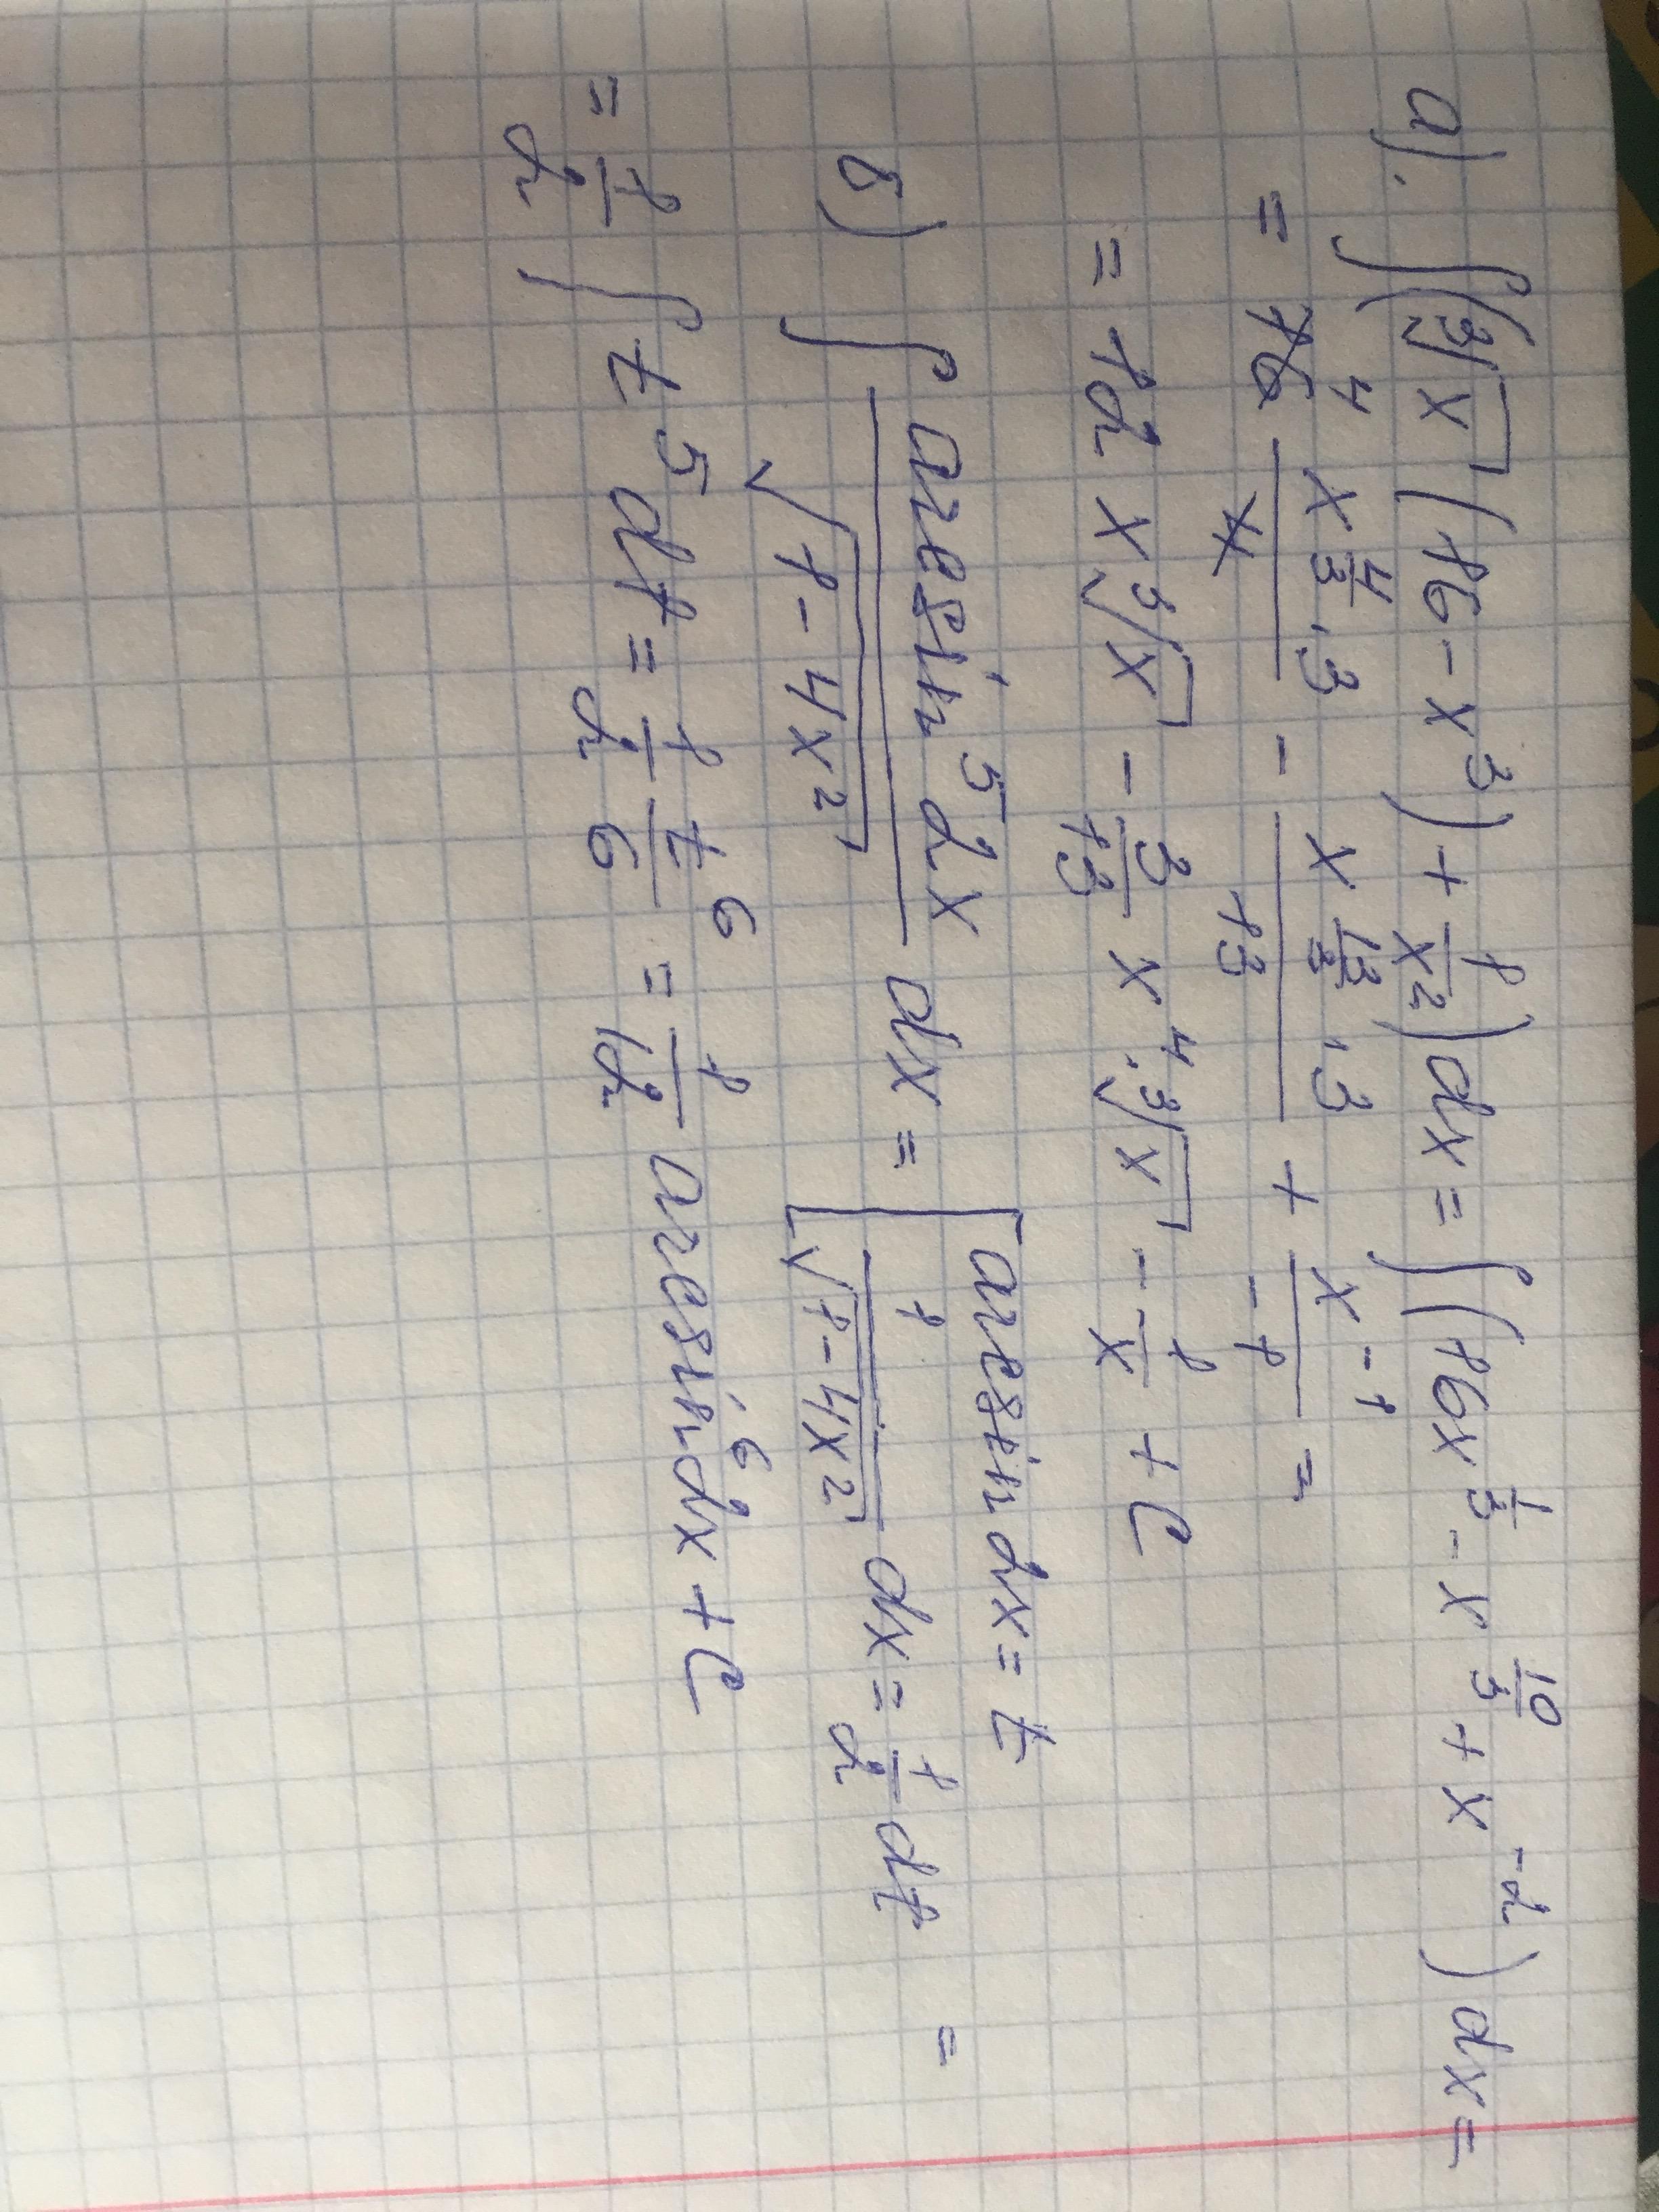 а). ∫(∛x (16 - x³) + 1/x²)dx = ∫(16x^(1/3) - x^(10/3) + x^(-2))dx =
= 16 4 (x^(4/3)·3)/4 - (x^(13/3)·3)/13 + x^(-1)/(-1) =
= 12x∛x - 3/13 x⁴·∛x - 1/x + C
б) ∫ (arcsin⁵2x)/√(1-4x²) dx = [arcsin2x = t
1/√(1-4x²) dx = 1/2 dt =
= 1/2 ∫ t⁵dt = 1/2 t⁶/6 = 1/12 arcsin⁶2x + C